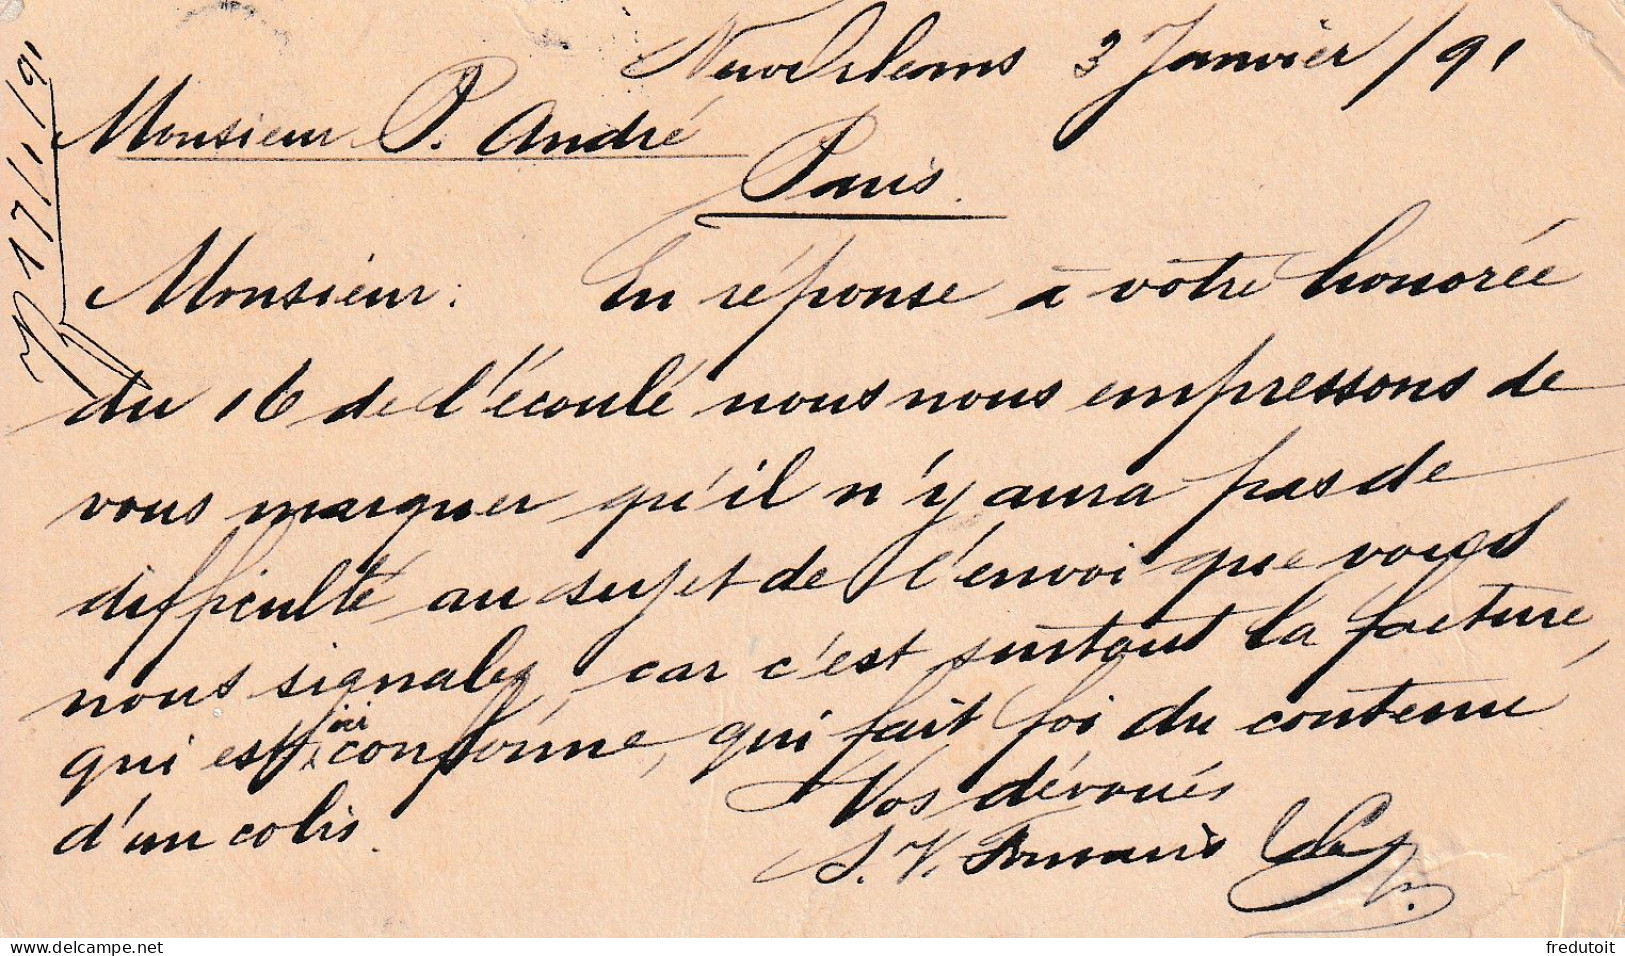 Nlle Orléans 3 Janvier /91
Monsieur P. André
Paris.
Monsieur: En réponse à votre honorée
du 16 de l'écoulé nous nous empressons de
vous marquer qu'il n'y aura pas de
difficulté au sujet de l'envoi que vous
nous signalez, car c'est surtout la facture,
qui est ici conforme, qui fait foi du contenu
d'un colis.
Vos dévoués
S. V. Fornaris
17/1/91
fredutoit